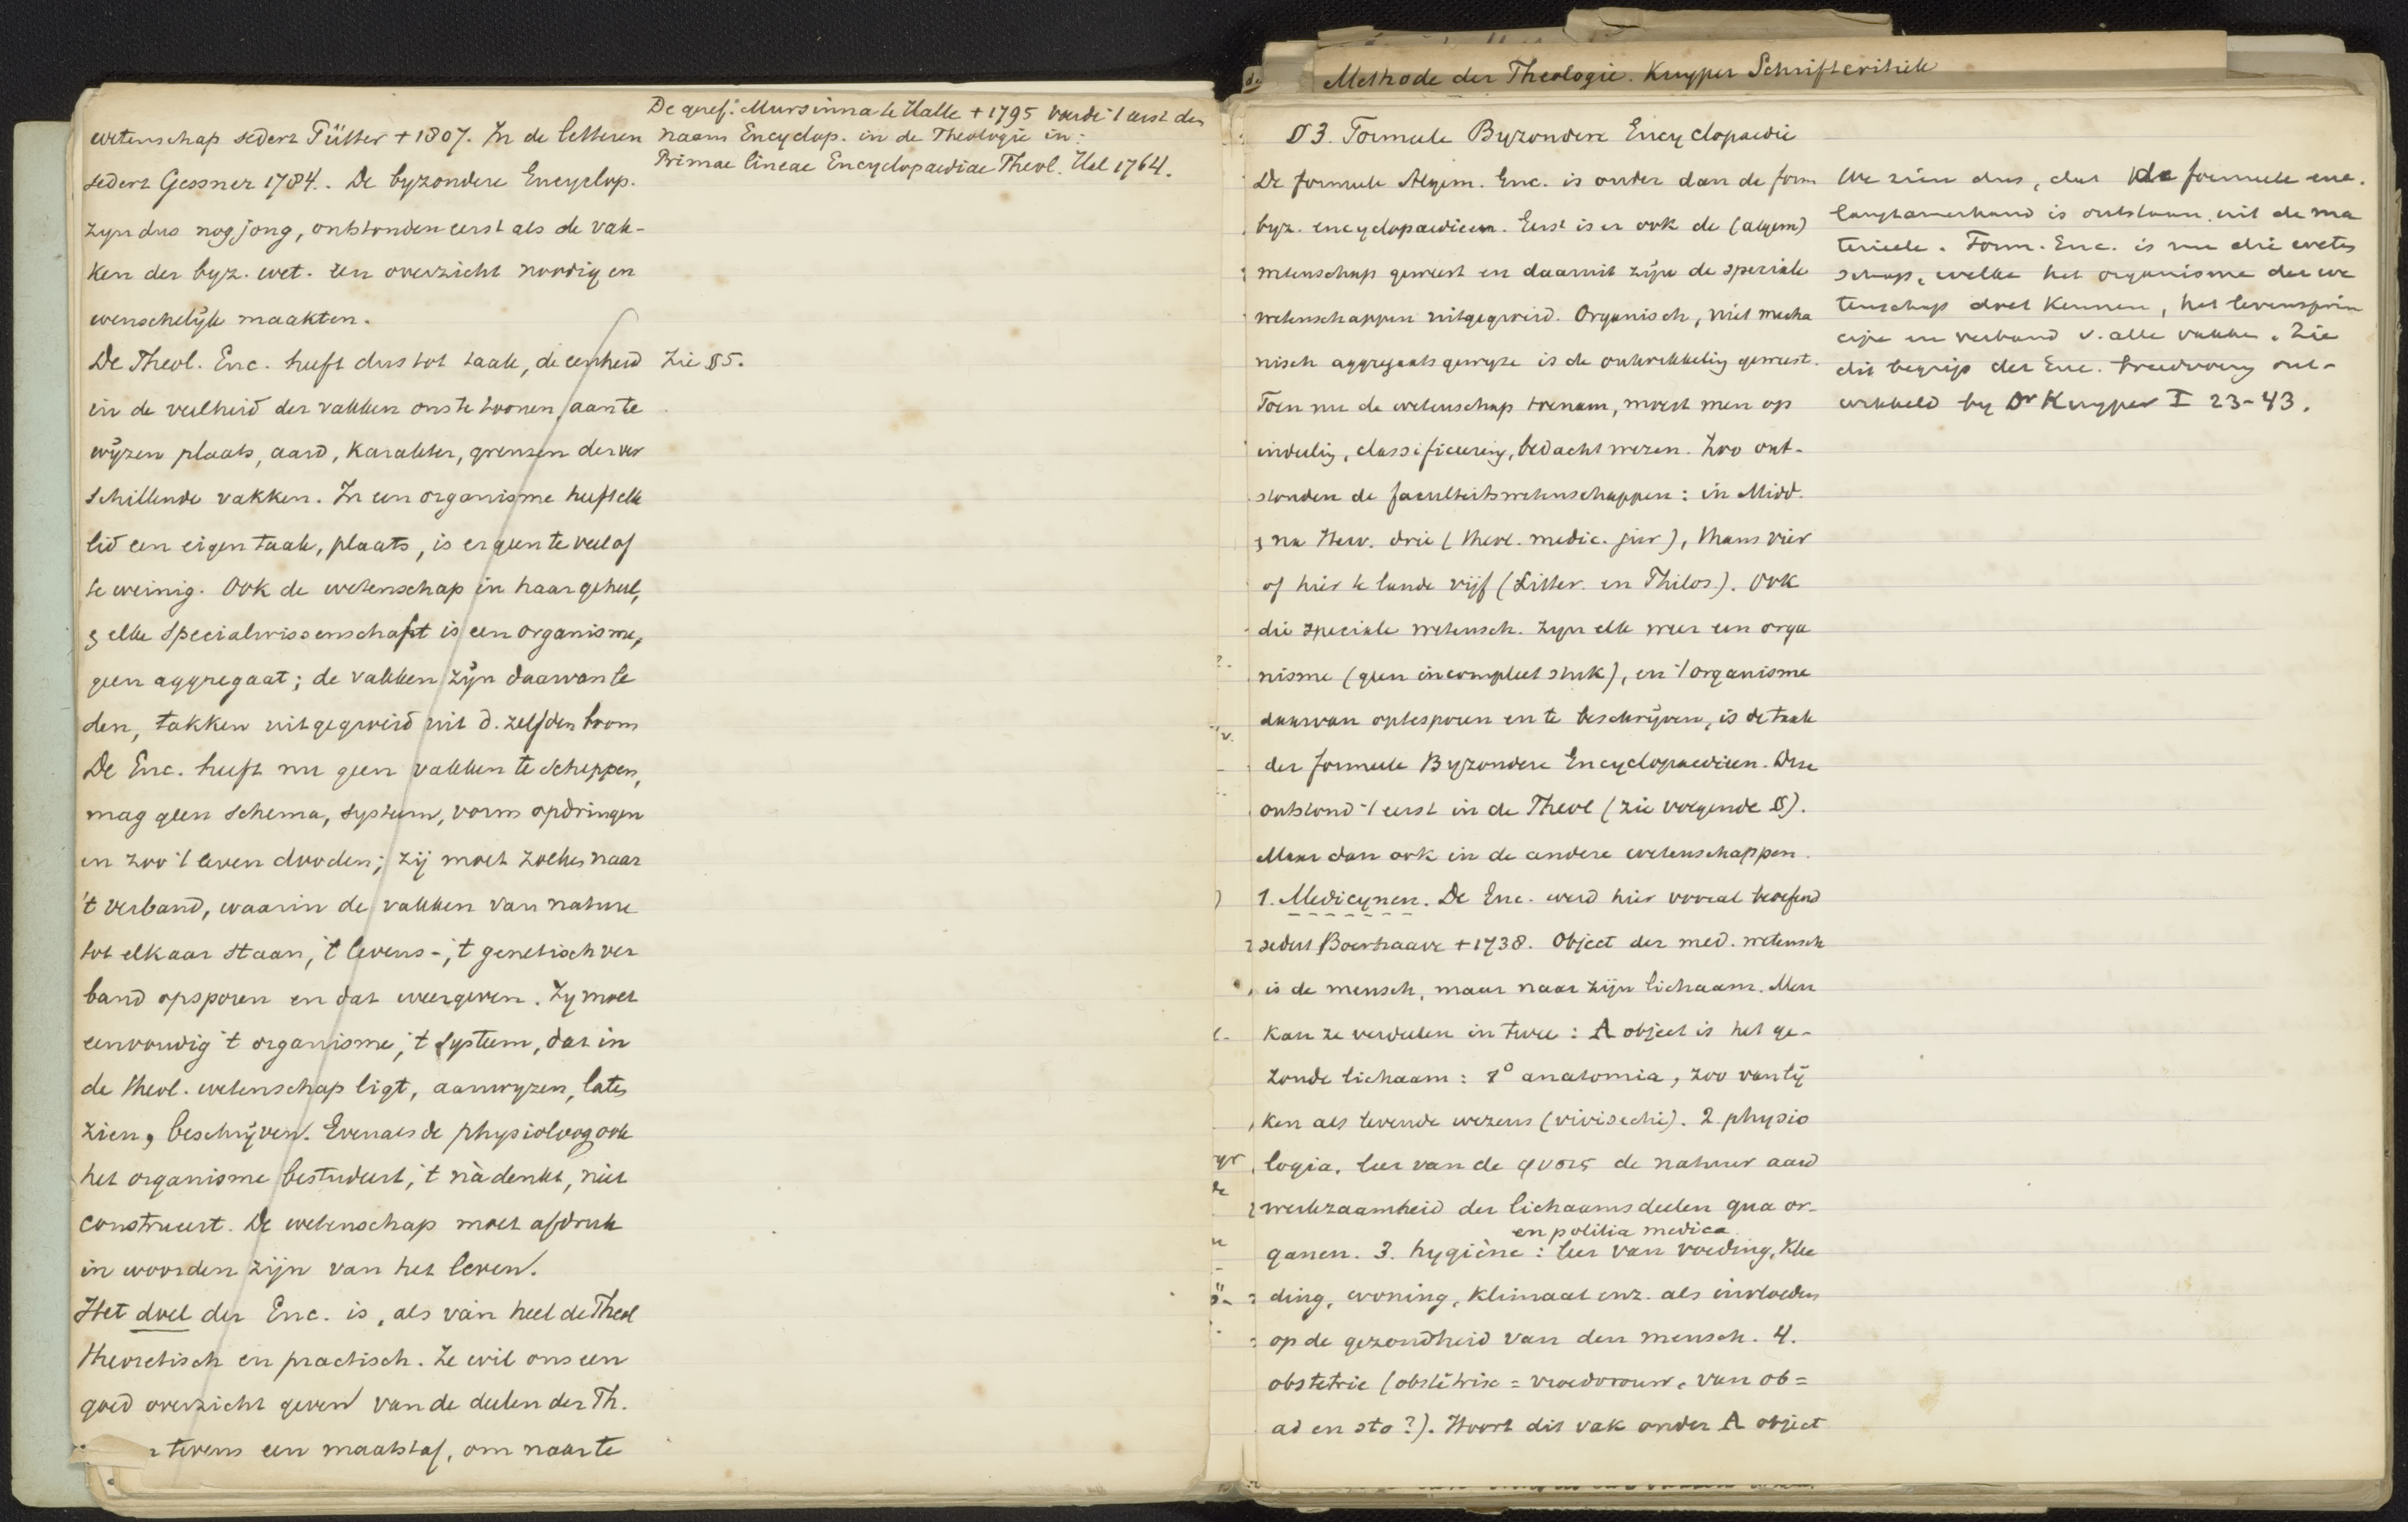 wetenschap sedert Pütter + 1807. In de letteren
sedert Gessner 1784. De byzondere Encyclop.
zyn dus nog jong, ontstonden eerst als de vak-
ken der byz. wet. een overzicht noodig en
wenschelijk maakten.
De Theol. Enc. heeft dus tot taak, de eenheid
in de veelheid der vakken ons te toonen, aan te
wijzen plaats, aard, karakter, grenzen der ver
schillende vakken. In een organisme heeft elk
lid een eigen taak, plaats, is er geen te veel of
te weinig. Ook de wetenschap in haar geheel,
& elke Specialwissenschaft is een organisme,
geen aggregaat; de vakken zijn daarvan le
den, takken uitgegroeid uit d. zelfden boom
De Enc. heeft nu geen vakken te scheppen,
mag geen schema, systeem, vorm opdringen
en zoo 't leven dooden; zij moet zoeken naar
't verband, waarin de vakken van nature
tot elkaar staan, 't levens-, 't genetisch ver
band opsporen en dat weergeven. Zy moet
eenvoudig 't organisme, 't systeem, dat in
de theol. wetenschap ligt, aanwyzen, laten
zien, beschrijven. Evenals de physioloog ook
het organisme bestudeert, 't nàdenkt, niet
construeert. De wetenschap moet afdruk
in woorden zijn van het leven.
Het doel der Enc. is, als van heel de Theol
theoretisch en practisch. Ze wil ons een
goed overzicht geven van de deelen der Th.
tevens een maatstaf, om naar te
De geref. Mursinna te Halle + 1795 voerde 't eerst den
naam Encyclop. in de Theologie in:
Primae lineae Encyclopaediae Theol. Hal 1764.
Zie § 5.
Methode der Theologie. Kuyper Schriftcritiek
§ 3. Formeele Byzondere Encyclopaedie
De formeele Algem. Enc. is ouder dan de form
byz. encyclopaedieen. Eerst is er ook de (algem)
wetenschap geweest en daaruit zijn de speciale
wetenschappen uitgegroeid. Organisch, niet mecha
nisch aggregaatsgewyze is de ontwikkeling geweest.
Toen nu de wetenschap toenam, moest men op
indeeling, classificeering, bedacht wezen. Zoo ont-
stonden de faculteitswetenschappen: in Midd.
& na Herv. drie (theol. medic. jur), thans vier
of hier te lande vijf (Litter. en Philos.). Ook
die speciale wetensch. zyn elk weer een orga
nisme (geen incompleet stuk), en 't organisme
daarvan optesporen en te beschrijven, is de taak
der formeele Byzondere Encyclopaedieen. Deze
ontstond 't eerst in de Theol (zie volgende §).
Maar dan ook in de andere wetenschappen.
1. Medicynen. De Enc. werd hier vooral beoefend
sedert Boerhaave + 1738. Object der med. wetensch
is de mensch, maar naar zijn lichaam. Men
kan ze verdeelen in twee: A object is het ge-
zonde lichaam: 1° anatomia, zoo van lij
ken als levende wezens (vivisectie). 2. physio
logia, leer van de φυσις de natuur aard
werkzaamheid der lichaamsdeelen qua or-
en politia medica
ganen. 3. hygiène: leer van voeding, klee
ding, woning, klimaat enz. als invloeden
op de gezondheid van den mensch. 4.
obstetrie (obstetrix = vroedvrouw, van ob =
ad en sto?). Hoort dit vak onder A object
We zien dus, dat de formeele enc.
langzamerhand is ontstaan uit de ma
terieele. Form. Enc. is nu die weten
schap, welke het organisme der we
tenschap doet kennen, het levensprin
cipe en verband v. alle vakken. Zie
dit begrip der Enc. breedvoerig ont-
wikkeld by Dr Kuyper I 23-43.